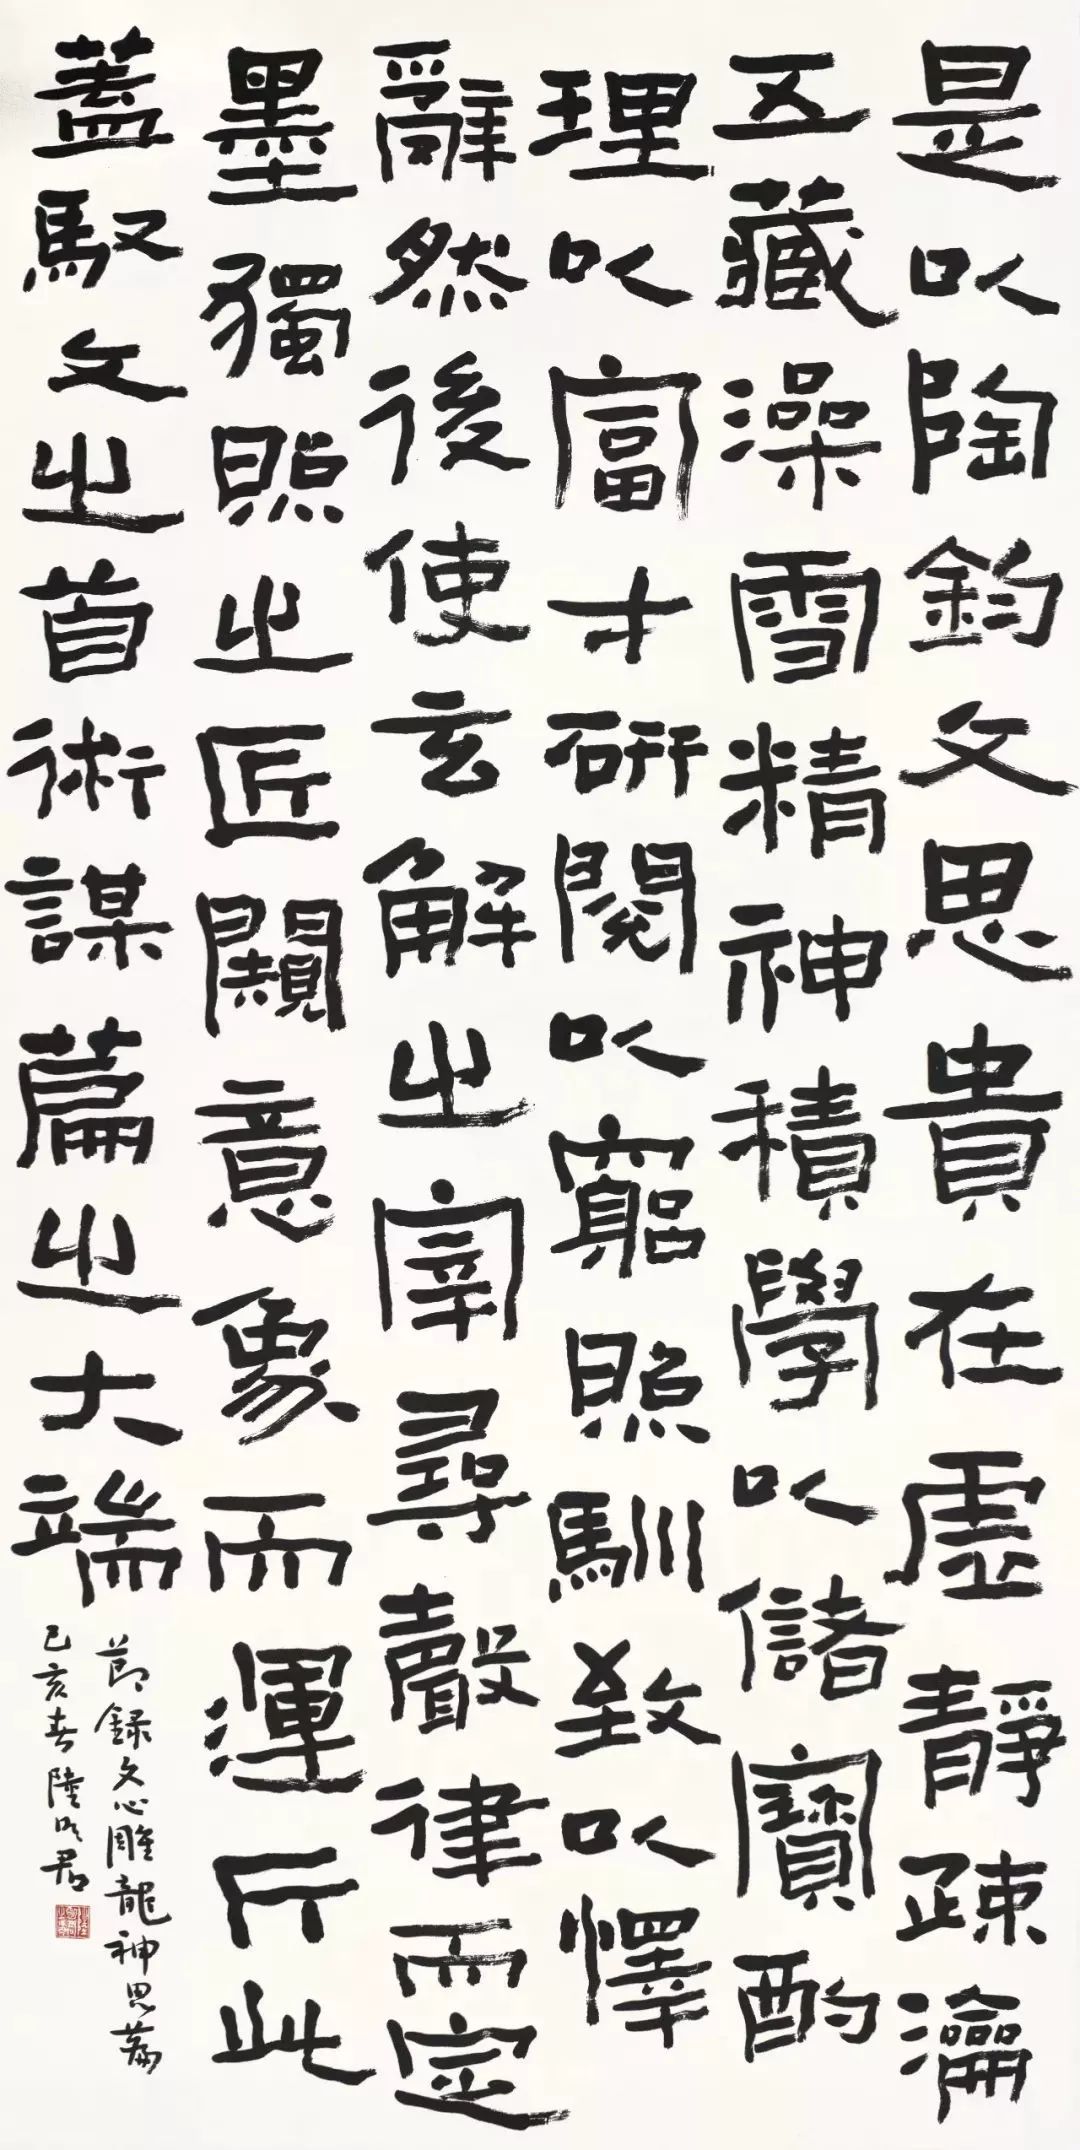 是以陶鈞文思貴在虛靜疎瀹
五藏澡雪精神積學以儲寶酌
理以富才研閱以窮照馴致以懌
辭然後使玄解之宰尋聲律而定
墨獨照之匠闚意象而運斤此
蓋馭文之首術謀篇之大端
節錄文心雕龍神思篇
己亥春陸明君